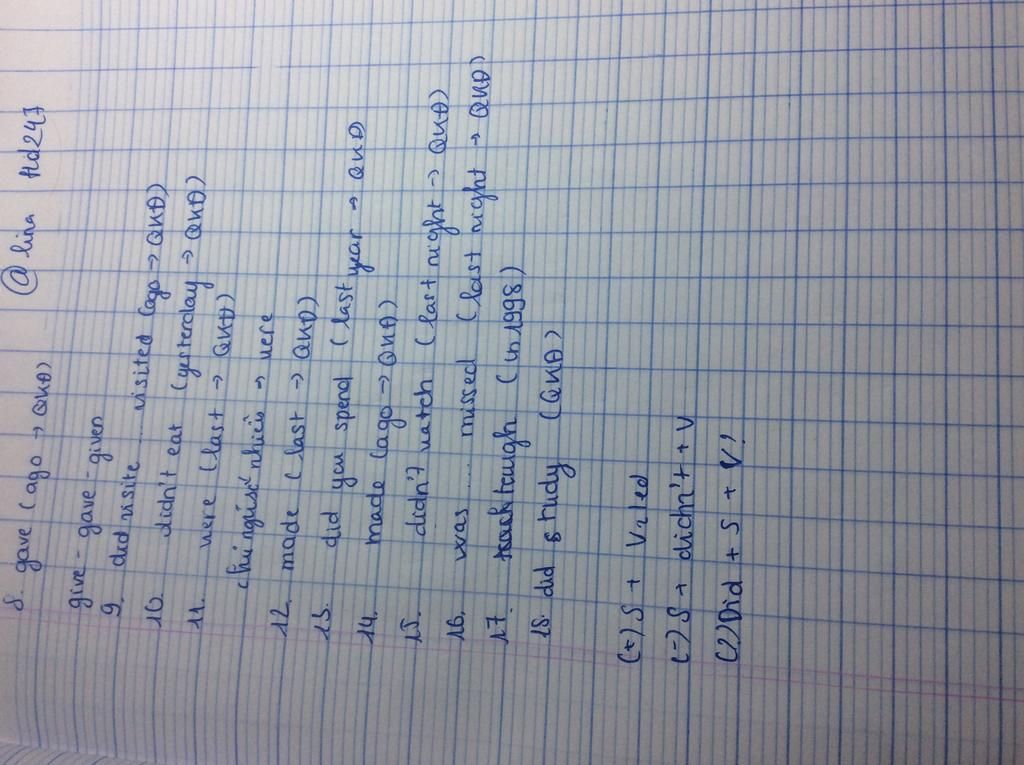 8. gave (ago → QKĐ) @ lina Hd247
give - gave - given
9. did visite ..... visited (ago → QKĐ)
10. didn't eat (yesterday → QKĐ)
11. were (last → QKĐ)
chủ ngữ số nhiều → were
12. made (last → QKĐ)
13. did you spend (last year → QKĐ
14. made (ago → QKĐ)
15. didn't watch (last night → QKĐ)
16. was ..... missed (last night → QKĐ)
17. taugh (in 1998)
18. did study (QKĐ)
(+) S + V2 / ed
(-) S + dichn't + V
(?) Did + S + V?